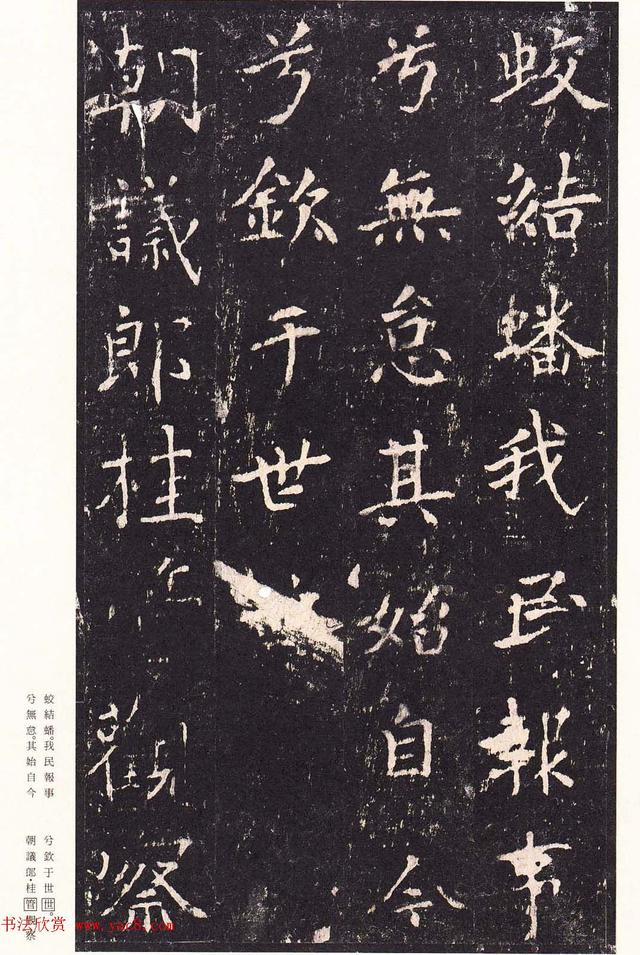 蛟結蟠我民報事
兮無怠其始自今
兮欽于世世
朝議郎桂管觀察
蛟結蟠。我民報事
兮無怠。其始自今
兮欽于世世。
朝議郎・桂管觀察
书法欣赏 www.yac8.com